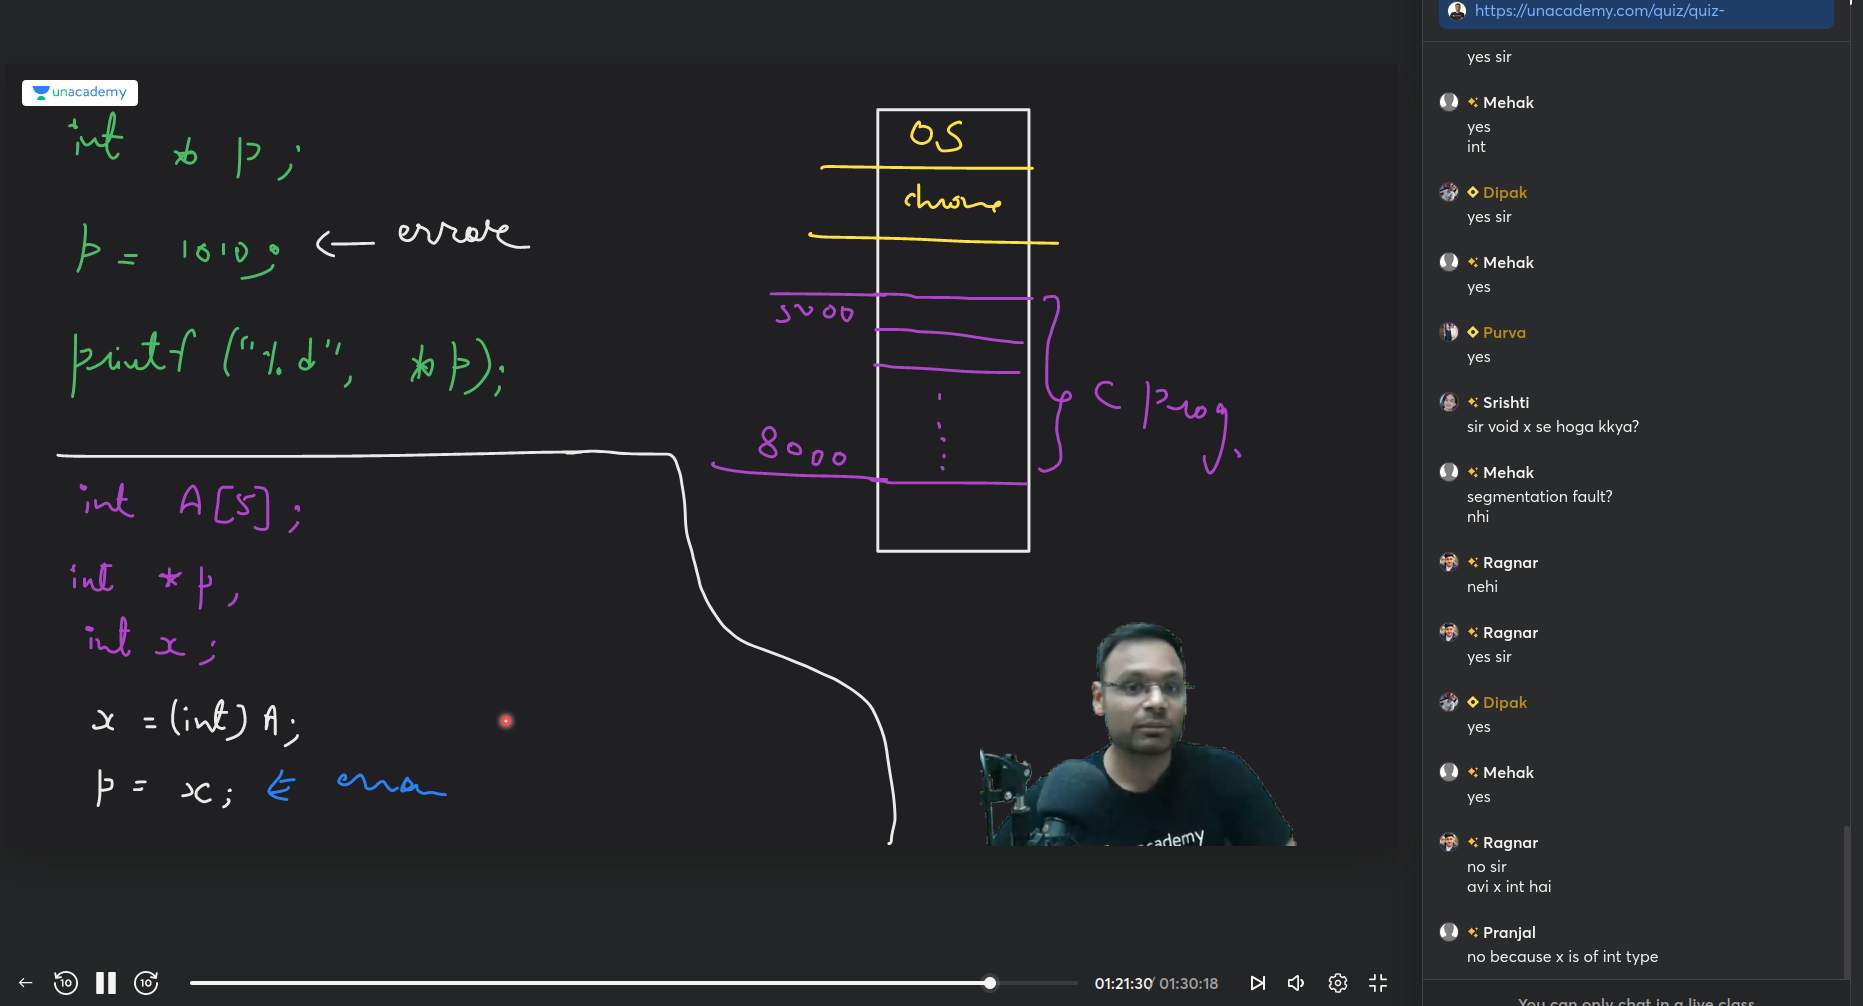 unacademy
int * p;
p = 1010;
← error
printf ("%d", *p);
int A[5];
int *p,
int x;
x = (int) A;
p = x; ⇐ error
OS
chrome
5000
8000
C prog.
academy
https://unacademy.com/quiz/quiz-
yes sir
Mehak
yes
int
Dipak
yes sir
Mehak
yes
Purva
yes
Srishti
sir void x se hoga kkya?
Mehak
segmentation fault?
nhi
Ragnar
nehi
Ragnar
yes sir
Dipak
yes
Mehak
yes
Ragnar
no sir
avi x int hai
Pranjal
no because x is of int type
You can only chat in a live class
10
10
01:21:30/ 01:30:18